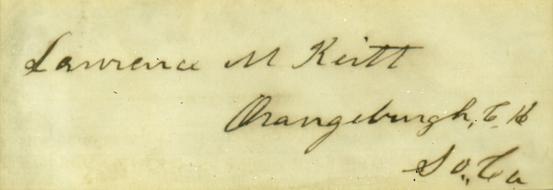 Lawrence M Keitt
Orangeburgh, C. H
So. Ca